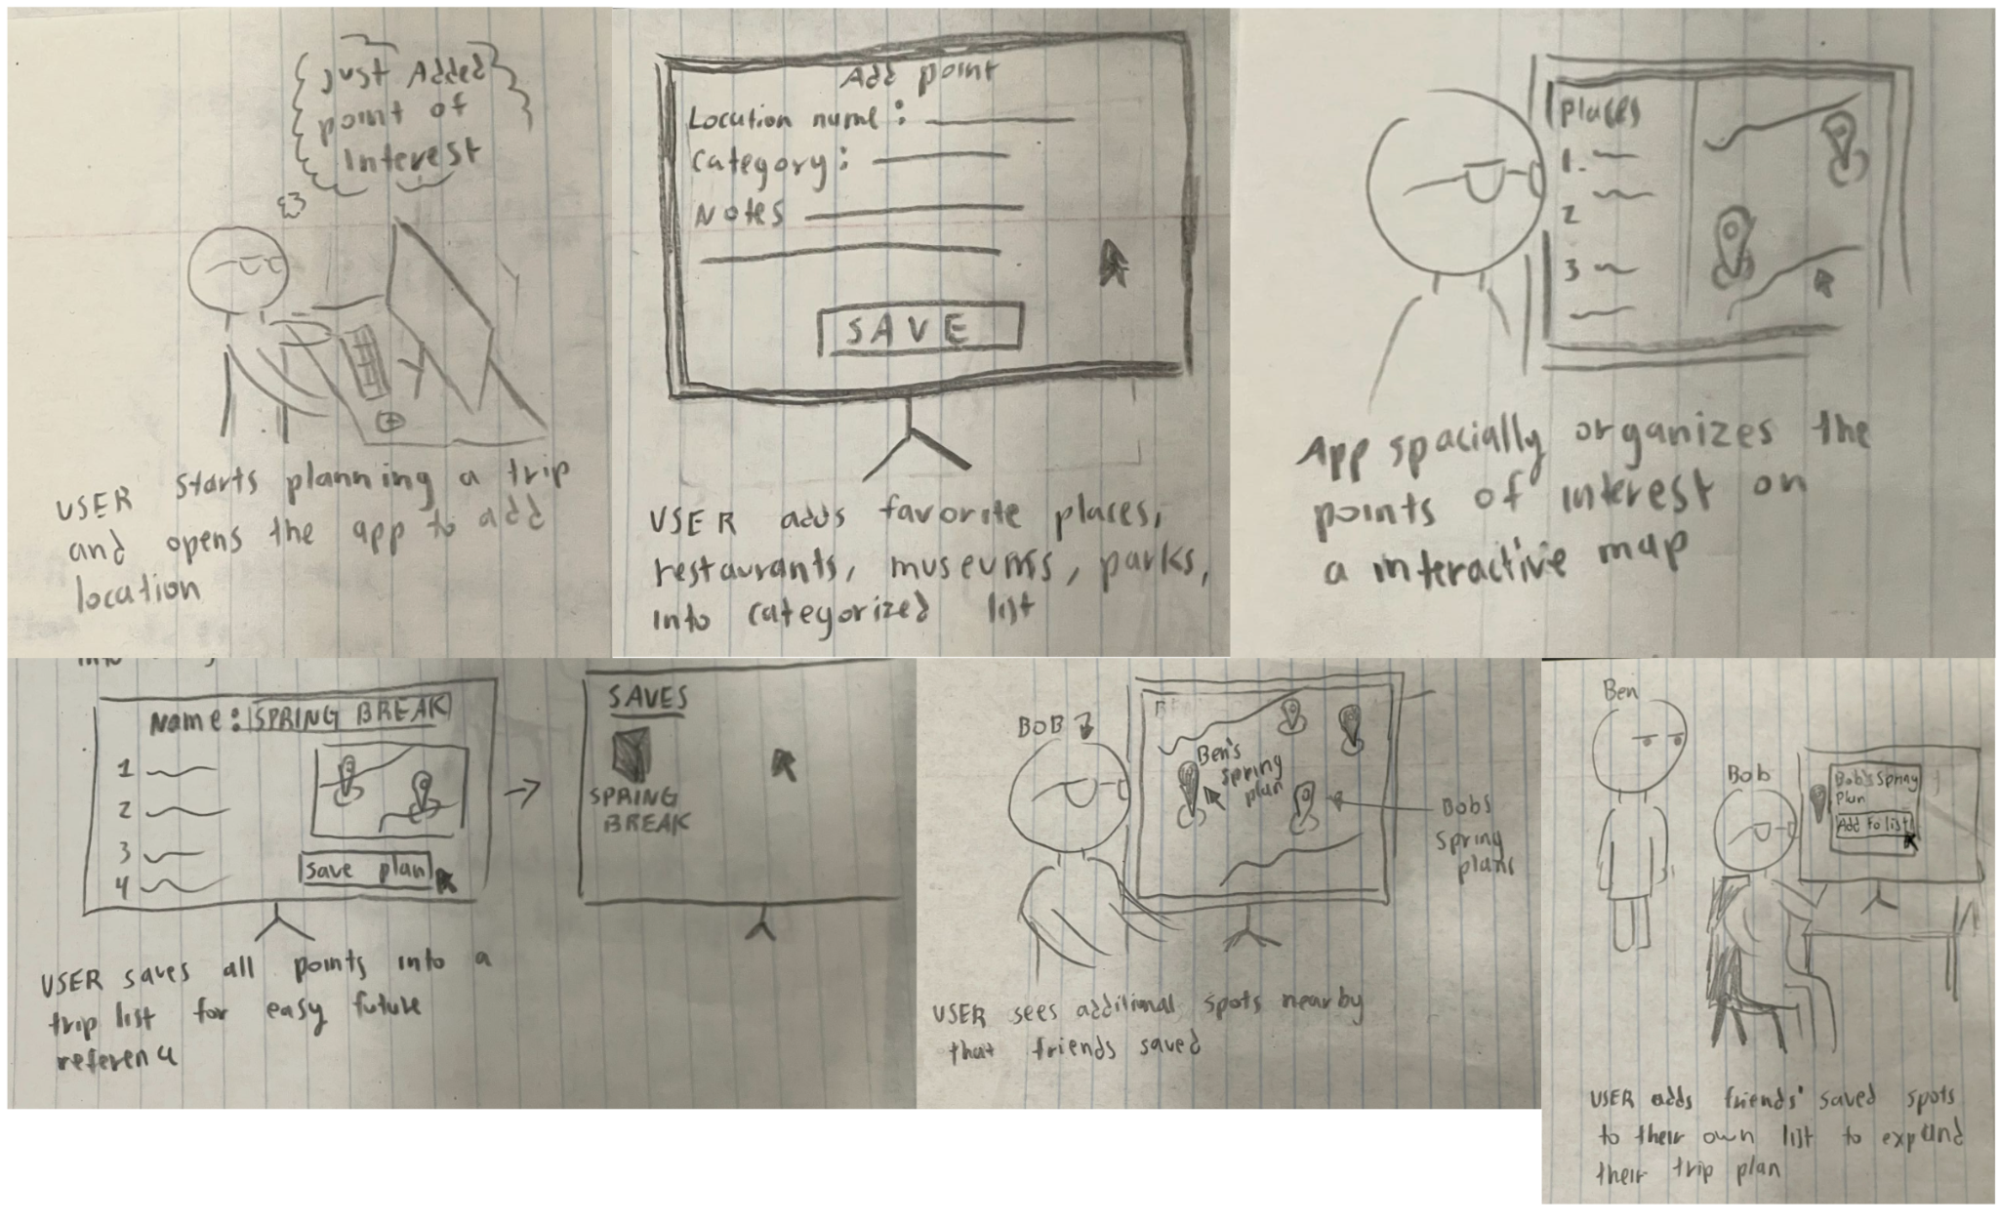 Just Added
point of
Interest
USER starts planning a trip
and opens the app to add
location
Add point
Location name:
Category:
Notes
SAVE
USER adds favorite places,
restaurants, museums, parks,
into categorized list
places
1.
2
3
App spacially organizes the
points of interest on
a interactive map
Name: SPRING BREAK
1
2
3
4
save plan
SAVES
SPRING
BREAK
USER saves all points into a
trip list for easy future
reference
BOB
Ben's
spring
plan
Bobs
spring
plans
USER sees additional spots nearby
that friends saved
Ben
Bob
Bob's Spring
Plan
Add to list
USER adds friends' saved spots
to their own list to expand
their trip plan